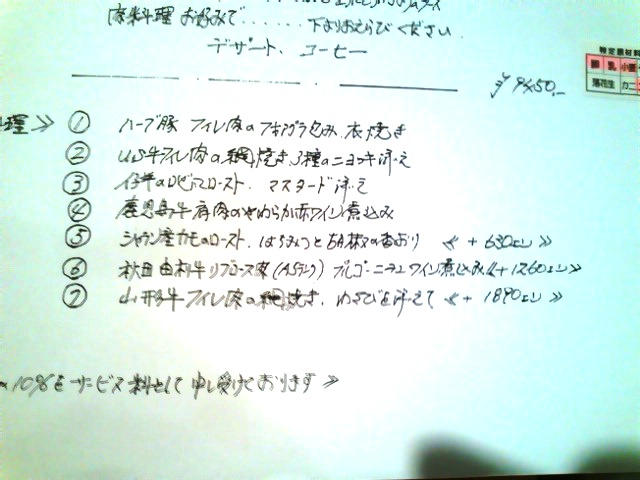 肉料理 お好みで......下よりおえらびください
デザート、コーヒー
¥9450.-
特定原材料
卵 乳 小麦
落花生 カニ
理》 ① ハーブ豚 フィレ肉のフォアグラ包み 衣焼き
② US牛フィレ肉の網焼き 3種のニョッキ添え
③ 仔羊のロースト、マスタード添え
④ 鹿児島牛肩肉のやわらか赤ワイン煮込み
⑤ シャラン産カモのロースト、はちみつと の香おり 《+630エン》
⑥ 秋田由利牛リブロース (A5ランク) ブルゴーニュワイン煮込み《+1260エン》
⑦ 山形牛フィレ肉の網焼き、わさびを添えて 《+1890エン》
10%をサービス料として申し受けております》